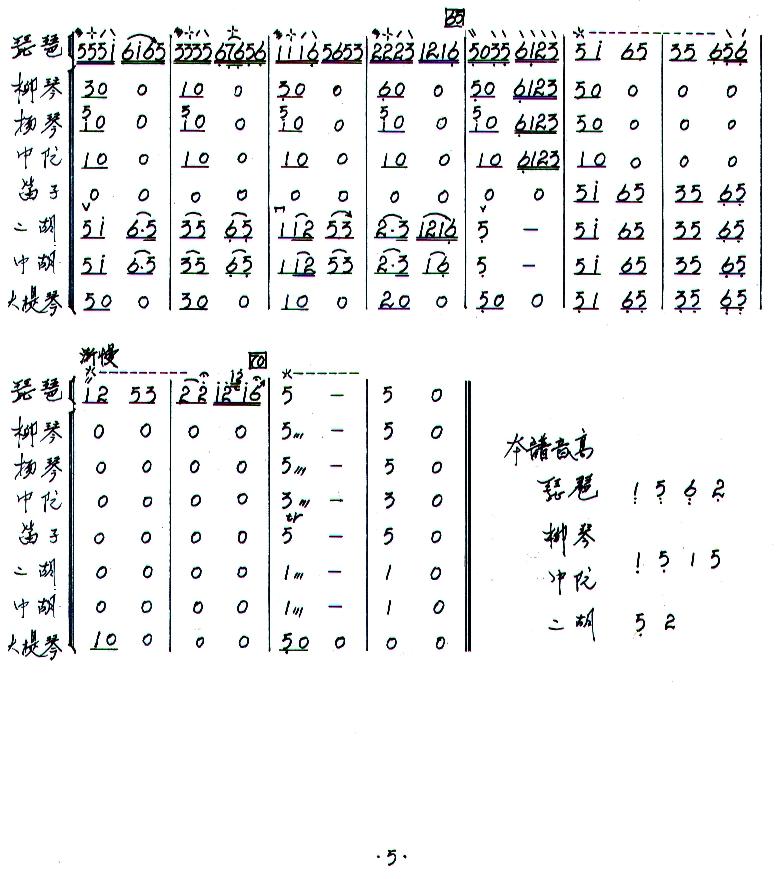 35
琵琶 5551 6165 3335 67656 1116 5653 2223 1216 5035 6123 51 65 35 656
柳琴 30 0 10 0 30 0 60 0 50 6123 50 0 0 0
扬琴 5 10 0 5 10 0 5 10 0 5 10 0 5 10 6123 50 0 0 0
中阮 10 0 10 0 10 0 10 0 10 6123 10 0 0 0
笛子 0 0 0 0 0 0 0 0 0 0 51 65 35 65
二胡 51 6·5 35 65 112 53 2·3 1216 5 – 51 65 35 65
中胡 51 6·5 35 65 112 53 2·3 16 5 – 51 65 35 65
大提琴 50 0 30 0 10 0 20 0 50 0 51 65 35 65
渐慢 70
琵琶 12 53 22 12 16 5 – 5 0
柳琴 0 0 0 0 5/// – 5 0
扬琴 0 0 0 0 5/// – 5 0
中阮 0 0 0 0 3/// – 3 0
tr
笛子 0 0 0 0 5 – 5 0
二胡 0 0 0 0 1/// – 1 0
中胡 0 0 0 0 1/// – 1 0
大提琴 10 0 0 0 50 0 0 0
本谱音高
琵琶 1 5 6 2
柳琴
中阮 1 5 1 5
二胡 5 2
·5·